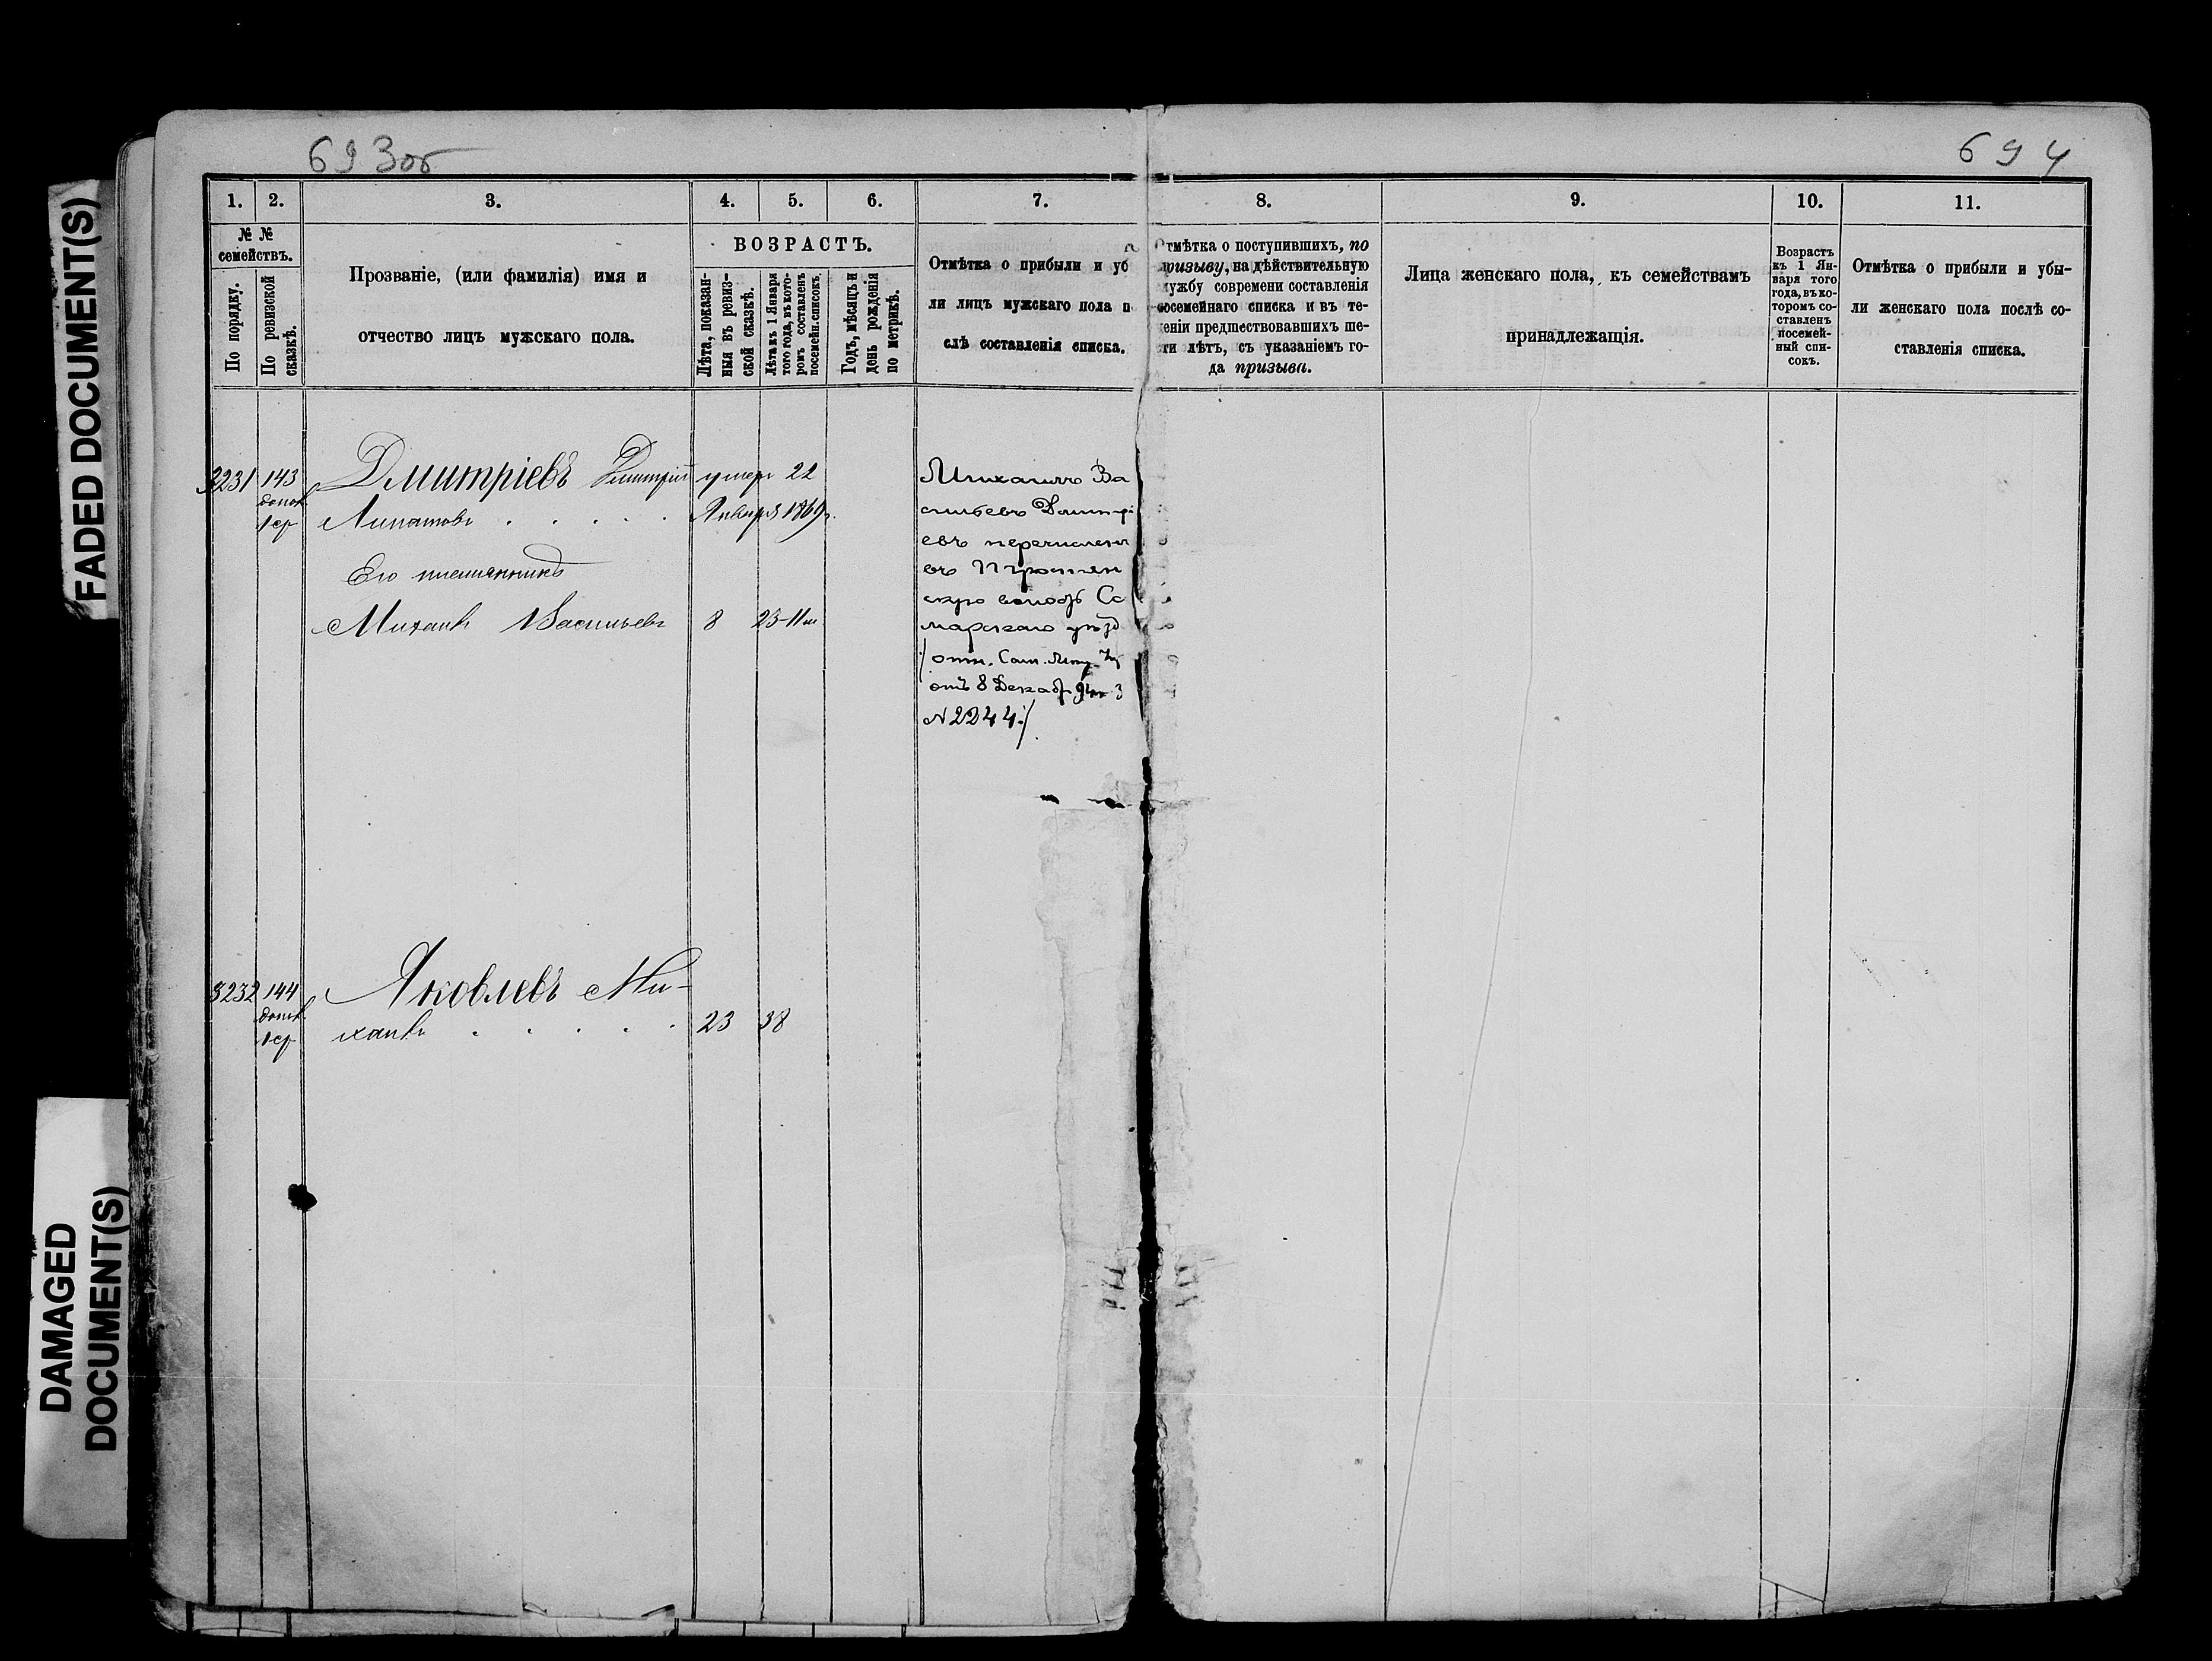 693об
694
FADED DOCUMENT(S)
DAMAGED
DOCUMENT(S)
1.
2.
3.
4.
5.
6.
7.
8.
9.
10.
11.
№ №
семействъ.
По порядку.
По ревизской
сказкѣ.
Прозваніе, (или фамилія) имя и
отчество лицъ мужскаго пола.
ВОЗРАСТЪ.
Лѣта, показан-
ныя въ ревиз-
ской сказкѣ.
Лѣта къ 1 Января
того года, въ кото-
ромъ составленъ
посемейн. списокъ.
Годъ, мѣсяцъ и
день рожденія
по метрикѣ.
Отмѣтка о прибыли и уб
ли лицъ мужскаго пола п
слѣ составленія списка.
Отмѣтка о поступившихъ, по
призыву, на дѣйствительную
лужбу современи составленія
посемейнаго списка и въ те-
ченіи предшествовавшихъ ше-
сти лѣтъ, съ указаніемъ го-
да призыва.
Лица женскаго пола, къ семействамъ
принадлежащія.
Возрастъ
къ 1 Ян-
варя того
года, въ ко-
торомъ со-
ставленъ
посемей-
ный спи-
сокъ.
Отмѣтка о прибыли и убы-
ли женскаго пола послѣ со-
ставленія списка.
3231 143 Дмитріевъ Дмитрій умеръ 22
допол.
1 ср Липатовъ . . . . . Января 1869г.
Его племянникъ
Михаилъ Васильевъ 8 23-11м
Михаилъ Ва
сильевъ Дмитрі
евъ перечисленъ
въ
скую волость Са
марскаго уѣзд
/отн. Сам.
отъ 8 Декаб.
№ 2244./
3232 144 Яковлевъ Ми-
допол.
1 ср хаилъ . . . . . 23 38